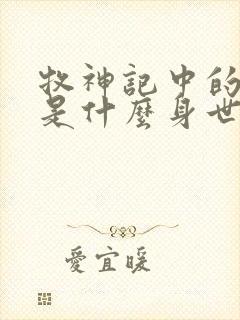 牧神記中的
是什麼身世
愛宜暖